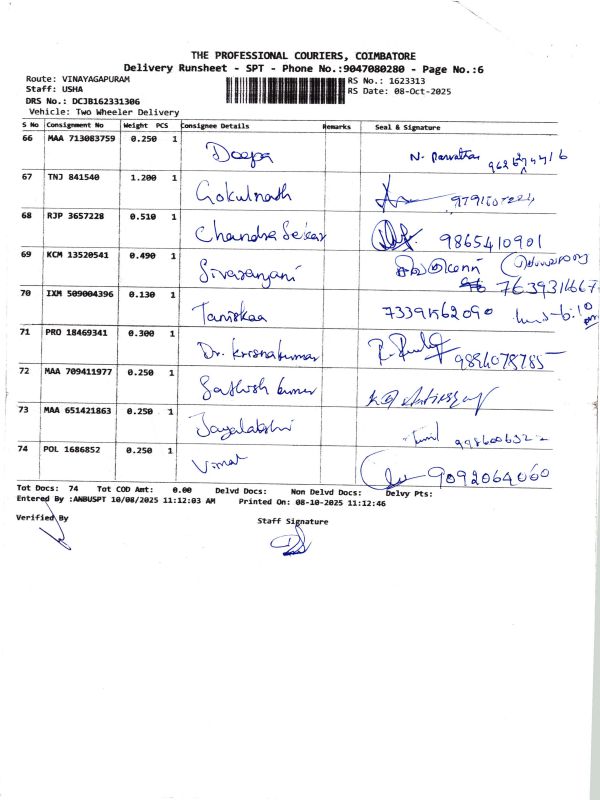 THE PROFESSIONAL COURIERS, COIMBATORE
Delivery Runsheet - SPT - Phone No.:9047080280 - Page No.:6
Route: VINAYAGAPURAM RS No.: 1623313
Staff: USHA RS Date: 08-Oct-2025
DRS No.: DCJB162331306
Vehicle: Two Wheeler Delivery
S No Consignment No Weight PCS Consignee Details Remarks Seal & Signature
66 MAA 713083759 0.250 1 Deepa
67 TNJ 841540 1.200 1 Gokulnath
68 RJP 3657228 0.510 1 Chandra Sekar 9865410901
69 KCM 13520541 0.490 1 Sivaranjani
70 IXM 509004396 0.130 1 Taniskaa
71 PRO 18469341 0.300 1 Dr. Krisnakumar
72 MAA 709411977 0.250 1 Sathish kumar
73 MAA 651421863 0.250 1 Jayalakshi
74 POL 1686852 0.250 1 Vimal 9092064060
Tot Docs: 74 Tot COD Amt: 0.00 Delvd Docs: Non Delvd Docs: Delvy Pts:
Entered By :ANBUSPT 10/08/2025 11:12:03 AM Printed On: 08-10-2025 11:12:46
Verified By Staff Signature